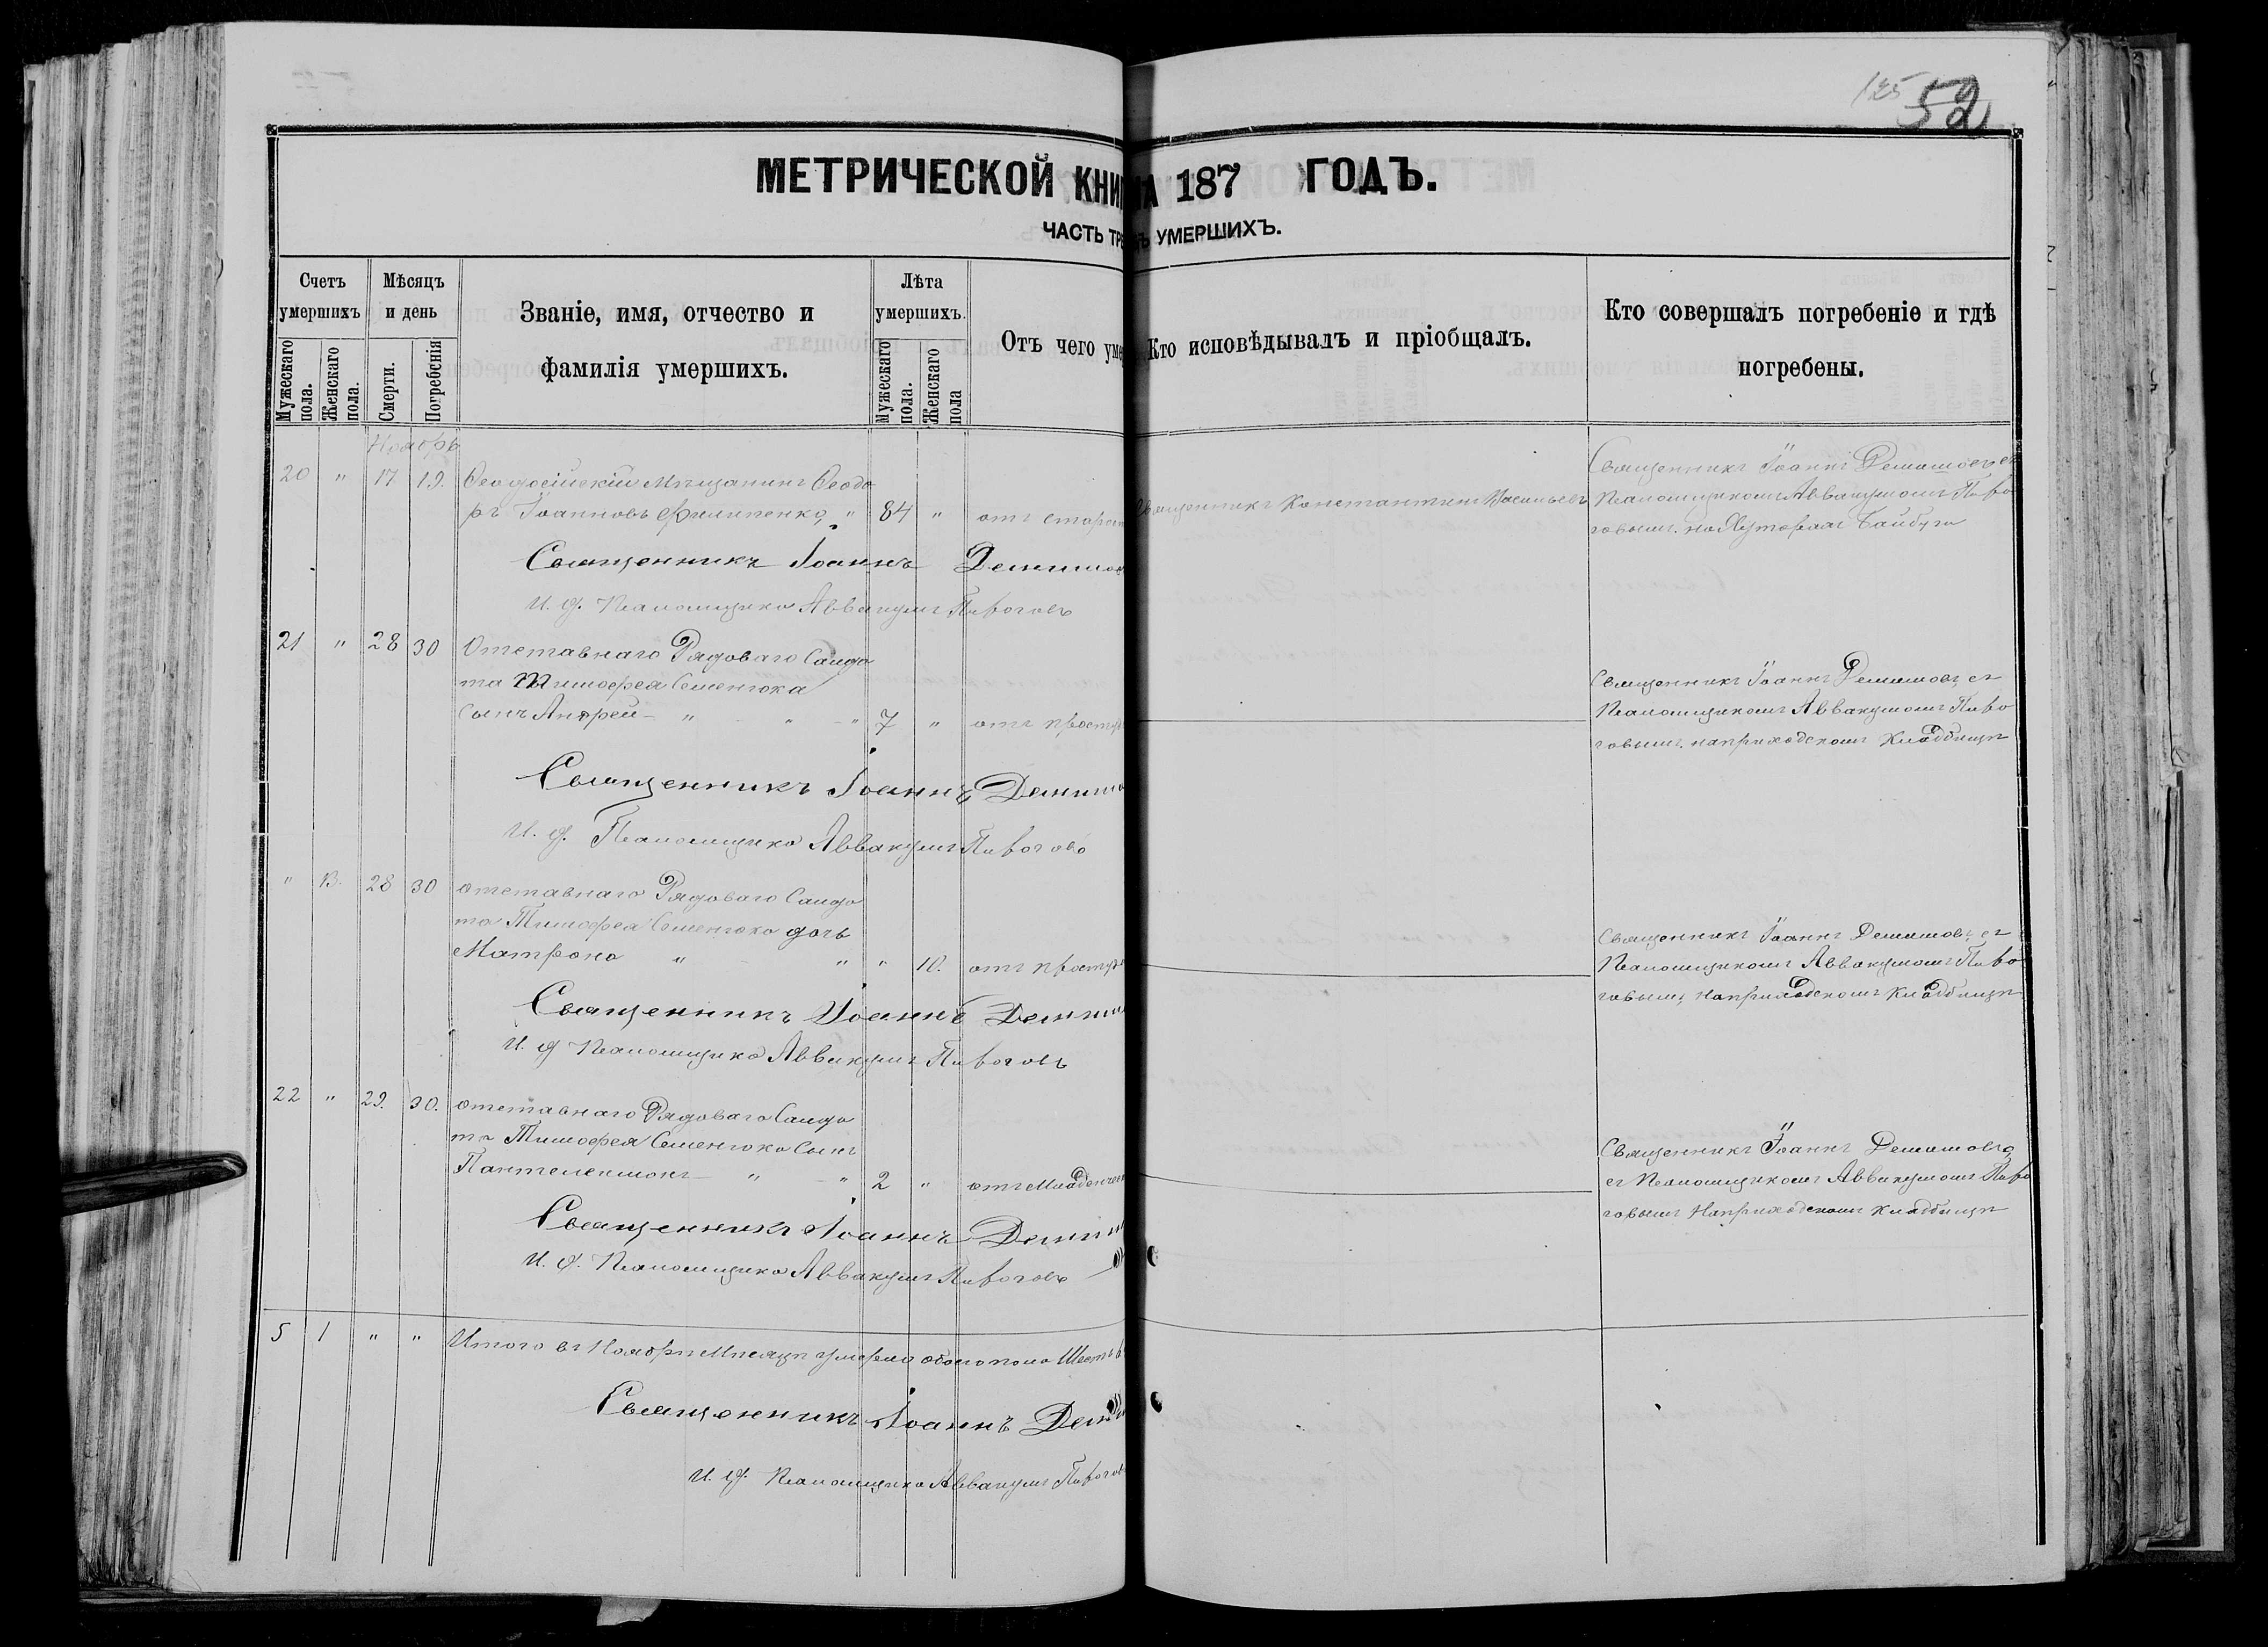 125 52
МЕТРИЧЕСКОЙ КНИ НА 187 ГОДЪ.
ЧАСТЬ ТРЕ УМЕРШИХЪ.
Счетъ умершихъ
Мужескаго пола.
Женскаго пола.
Мѣсяцъ и день
Смерти.
Погребенія
Званіе, имя, отчество и
фамилія умершихъ.
Лѣта умершихъ.
Мужескаго пола.
Женскаго пола
Отъ чего уме
Кто исповѣдывалъ и пріобщалъ.
Кто совершалъ погребеніе и гдѣ
погребены.
Ноябрь
20 " 17 19. Ѳеодосійскій Мѣщанинъ Ѳеодо
ръ Іоанновъ Филипенко, " 84 " отъ старос
Священникъ Константинъ
Священникъ Іоаннъ Демишовъ съ
Псаломщикомъ Аввакумомъ Пиро
говымъ. на Хуторахъ Байбуга
Священникъ Іоаннъ Демишов
И. д. Псаломщика Аввакумъ Пироговъ
21 " 28 30 Отставнаго Рядоваго Солда
та Тимофея Семенюка
Сынъ Андрей - " - " - " 7 " отъ просту
Священникъ Іоаннъ Демишовъ, съ
Псаломщикомъ Аввакумомъ Пиро
говымъ. на приходскомъ Кладбищѣ
Священникъ Іоаннъ Демишо
И. д. Псаломщика Аввакумъ Пироговъ
" 13. 28 30 отставнаго Рядоваго Солда
та Тимофея Семенюка дочь
Матрона " - " " 10. отъ просту
Священникъ Іоаннъ Демишовъ, съ
Псаломщикомъ Аввакумомъ Пиро
говымъ, на приходскомъ Кладбищѣ
Священникъ Іоаннъ Демиш
И. д Псаломщика Аввакумъ Пироговъ
22 " 29. 30. отставнаго Рядоваго Солда
та Тимофея Семенюка Сынъ
Пантелеимонъ - " - " 2 " отъ Младенчес
Священникъ Іоаннъ Демишовъ,
съ Псаломщикомъ Аввакумомъ Пиро
говымъ на приходскомъ кладбищѣ
Священникъ Іоаннъ Демиш
И. д. Псаломщика Аввакумъ Пироговъ
5 1 " " Итого въ Ноябрѣ Мѣсяцѣ умерло обоего пола Шесть
Священникъ Іоаннъ Деми
И. д. Псаломщика Аввакумъ Пирогов